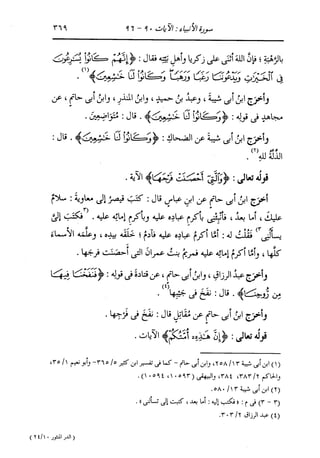 سورة الأنبياء : الآيات ٩٠ - ٩٦
٣٦٩
بالرَّهبةِ ؛ فإنَّ اللهَ أثنى على زكريا وأهلِ بيتِه فقال : ﴿إِنَّهُمْ كَانُوا يُسَارِعُونَ
فِي الْخَيْرَاتِ وَيَدْعُونَنَا رَغَبًا وَرَهَبًا وَكَانُوا لَنَا خَاشِعِينَ﴾(١).
وأخرَج ابنُ أبي شيبةَ ، وعبدُ بنُ حميدٍ ، وابنُ المنذرِ ، وابنُ أبي حاتمٍ ، عن
مجاهدٍ في قولِه : ﴿وَكَانُوا لَنَا خَاشِعِينَ﴾ . قال : مُتواضِعِين .
وأخرَج ابنُ أبي شيبةَ عن الضحاكِ : ﴿وَكَانُوا لَنَا خَاشِعِينَ﴾ . قال :
الذِّلَّةُ للهِ(٢).
قولُه تعالى : ﴿وَالَّتِي أَحْصَنَتْ فَرْجَهَا﴾ الآية .
أخرَج ابنُ أبي حاتمٍ عن ابنِ عباسٍ قال : كتَب قيصرُ إلى معاويةَ : سلامٌ
عليك ، أما بعدُ ، فأنبئْني بأكرمِ عبادِه عليه وبأكرمِ إمائِه عليه . (٣فكتب إليَّ
يسألُني٣) فقلتُ له : أما أكرمُ عبادِه عليه فآدمُ ؛ خلَقه بيدِه ، وعلَّمه الأسماءَ
كلَّها ، وأما أكرمُ إمائِه عليه فمريمُ بنتُ عمرانَ التي أحصَنت فرجَها .
وأخرَج عبدُ الرزاقِ ، وابنُ أبي حاتمٍ ، عن قتادةَ في قولِه : ﴿فَنَفَخْنَا فِيهَا
مِن رُّوحِنَا﴾ . قال : نفَخ في جَيْبِها(٤).
وأخرَج ابنُ أبي حاتمٍ عن مُقاتلٍ قال : نفَخ في فَرْجِها .
قولُه تعالى : ﴿إِنَّ هَٰذِهِ أُمَّتُكُمْ﴾ الآيات .
(١) ابن أبي شيبة ١٣/ ٢٥٨، وابن أبي حاتم - كما في تفسير ابن كثير ٥/ ٣٦٥ - وأبو نعيم ١/ ٣٥،
والحاكم ٢/ ٣٨٣، ٣٨٤، والبيهقي (١٠٥٩٣، ١٠٥٩٤).
(٢) ابن أبي شيبة ١٣/ ٥٨٠.
(٣ - ٣) في م : « فكتب إليه : أما بعد ، كتبت إليَّ تسألني ».
(٤) عبد الرزاق ٢/ ٣٠٣.
( الدر المنثور ٢٤/١٠ )